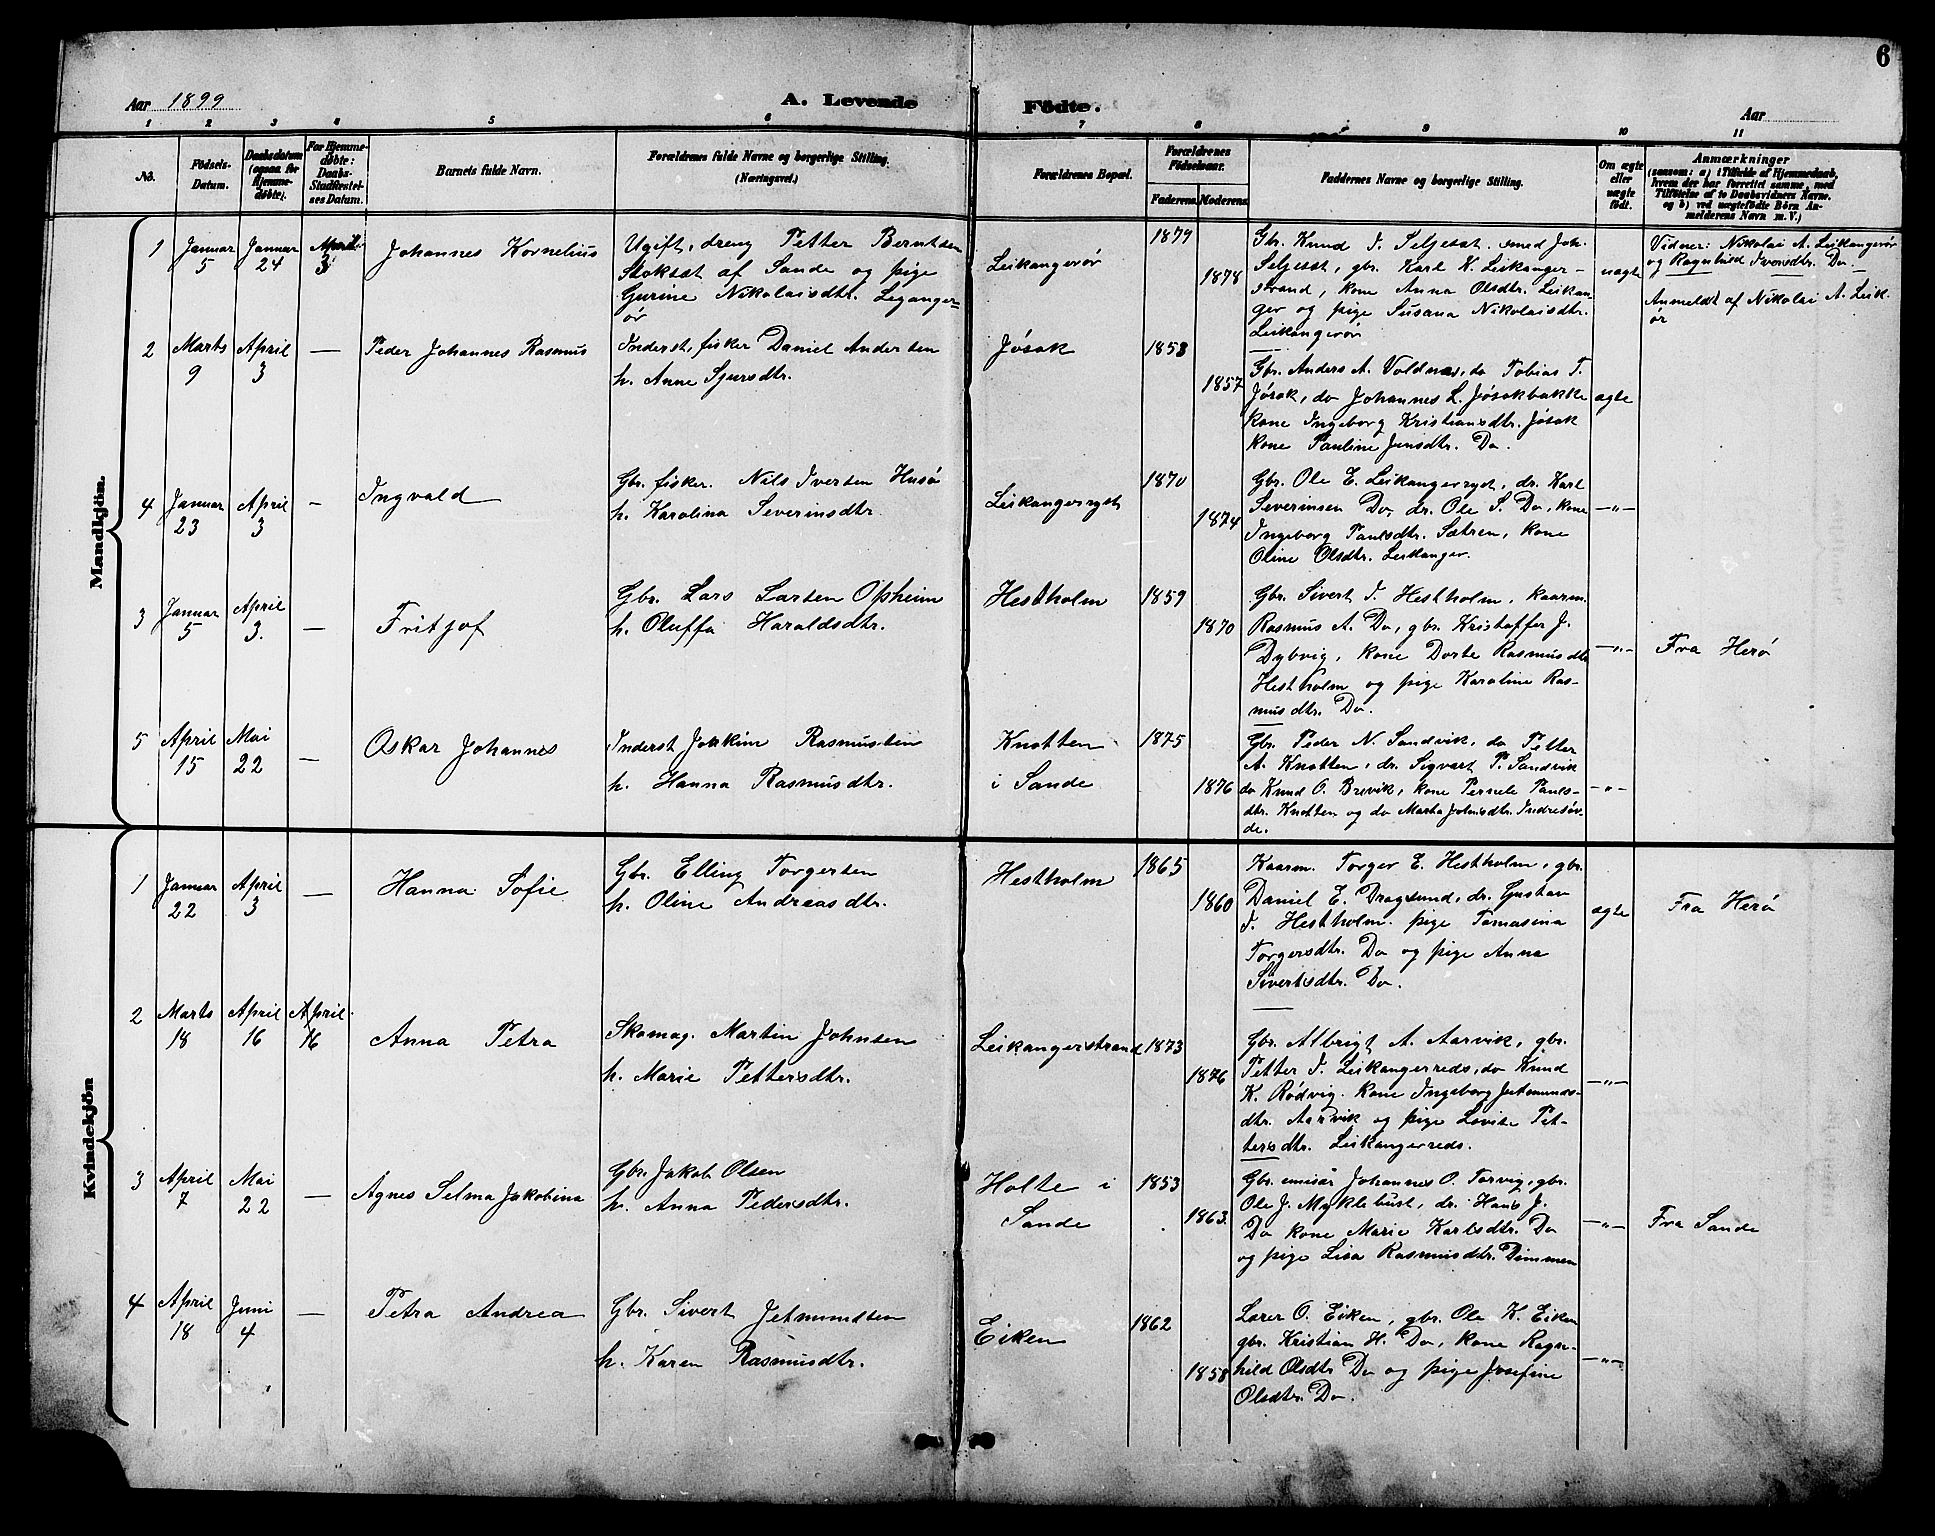 6
Aar 1899
A. Levende Födte.
Aar
1 2 3 4 5 6 7 8 9 10 11
No.
Födsels-
Datum.
Daabsdatum
(ogsaa for
Hjemme-
döbte).
For Hjemme-
döbte:
Daabs-
Stadfæstel-
ses Datum.
Barnets fulde Navn.
Forældrenes fulde Navne og borgerlige Stilling.
(Næringsvei.)
Forældrenes Bopæl.
Forældrenes
Födselsaar.
Faderens. Moderens.
Faddernes Navne og borgerlige Stilling.
Om ægte
eller
uægte
födt.
Anmærkninger
(saasom: a) i Tilfælde af Hjemmedaab,
hvem der har forrettet samme, med
Tilföielse af to Daabsvidners Navne.
og b) ved uægtefödte Börn An-
melderens Navn m. V.)
Mandkjön.
1
Januar
5
Januar
24
April
3
Johannes Kornelius
Ugift, dreng Petter Berntsen
Stoksæt af Sande og pige
Gurine Nikolaisdtr. Leganger-
ör
Leikangerør
1879
1878
Gbr. Knud J. Seljeset, smed Joh.
Seljeset, gbr. Karl K. Leikanger-
strand, kone Anna Olsdtr. Leikan-
ger og pige Susana Nikolaisdtr.
Leikangerør
uægte
Vidner: Nikolai A. Leikangerør
og Ragnhild Iversdtr. Do
Anmeldt af Nikolai A. Leik.
ør
2
Marts
9
April
3
—
Peder Johannes Rasmus
Inderst, fisker Daniel Andersen
h. Anne Sjursdtr.
Jøsok
1853
1857
Gbr. Anders A. Voldnes, do Tobias T.
Jøsok, do Johannes L. Jøsokbakke
kone Ingeborg Kristiansdtr. Jøsok
kone Pauline Jensdtr. Do.
ægte
4
Januar
23
April
3
—
Ingvald
Gbr. fisker. Nils Iversen Husø
h. Karolina Severinsdtr
Leikangersryst
1870
1874
Gbr. Ole E. Leikangerryst, dr. Karl
Severinsen Do, dr. Ole S. Do, kone
Ingeborg Paulsdtr. Sætren, kone
Oline Olsdtr. Leikanger.
—"—
3
Januar
5
April
3.
—
Fritjof
Gbr. Lars Larsen Opsheim
h. Oluffa Haraldsdtr.
Hestholm
1859
1870
Gbr. Sivert J. Hestholm, kaarm.
Rasmus A. Do, gbr. Kristoffer J.
Dybvig, kone Dorte Rasmusdtr
Hestholm og pige Karoline Ras-
musdtr. Do.
—"—
Fra Herø
5
April
15
Mai
22
—
Oskar Johannes
Inderst Joakim Rasmussen
h. Hanna Rasmusdtr.
Knotten
i Sande
1875
1876
Gbr. Peder N. Sandvik, do Petter
A. Knotten, dr. Sigvart P. Sandvik
do Knud O. Brevik, kone Pernele Pauls-
dtr. Knotten og do Marta Johnsdtr. Indresøv-
de.
—"—
Kvindekjön
1
Januar
22
April
3
—
Hanna Sofie
Gbr. Elling Torgersen
h. Oline Andreasdtr.
Hestholm
1865
1860
Kaarm. Torger E. Hestholm, gbr.
Daniel E. Dragsund, dr. Gustav
J. Hestholm. pige Tomasina
Torgersdtr. Do og pige Anna
Sivertsdtr. Do.
ægte
Fra Herø
2
Marts
18
April
16
April
16
Anna Petra
Skomag. Martin Johnsen
h. Marie Pettersdtr.
Leikangerstrand
1873
1876
Gbr. Albrigt A. Aarvik, gbr.
Petter J. Leikangerreds, do Knud
K. Rødvig. kone Ingeborg Jetmunds-
dtr. Aarvik og pige Lovise Pet-
tersdtr. Leikangerreds.
—"—
3
April
7
Mai
22
—
Agnes Selma Jakobina
Gbr. Jakob Olsen
h. Anna Pedersdtr.
Holte i
Sande
1853
1863.
Gbr. emisär Johannes O. Torvig, gbr.
Ole J. Myklebust, dr. Hans J.
Do kone Marie Karlsdtr. Do
og pige Lisa Rasmusdtr. Dimmen
—"—
Fra Sande
4
April
18
Juni
4
—
Petra Andrea
Gbr. Sivert Jetmundsen
h. Karen Rasmusdtr.
Eiken
1862
1858
Lærer O. Eiken, gbr. Ole K. Eiken
gbr. Kristian H. Do, kone Ragn-
hild Olsdtr Do og pige Josefine
Olsdtr. Do.
—"—